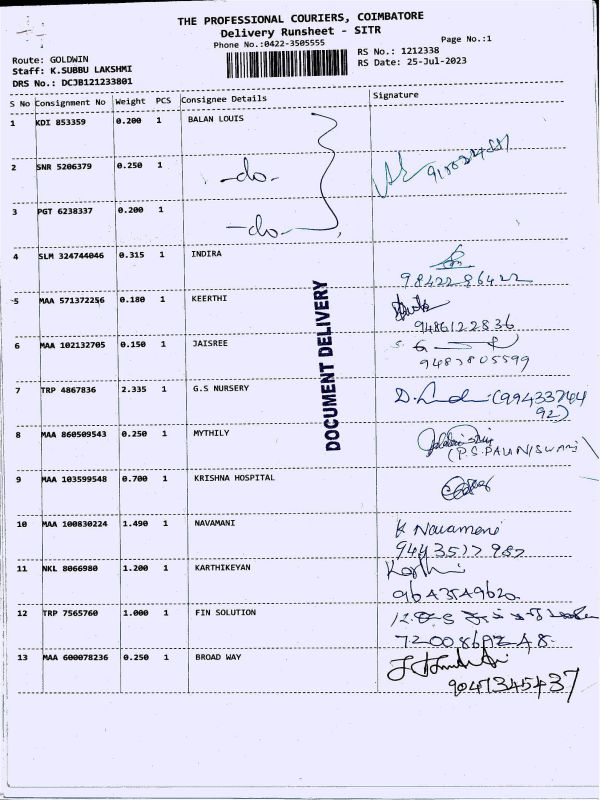 THE PROFESSIONAL COURIERS, COIMBATORE
Delivery Runsheet - SITR
Phone No.:0422-3505555
Page No.:1
Route: GOLDWIN
Staff: K.SUBBU LAKSHMI
DRS No.: DCJB121233801
RS No.: 1212338
RS Date: 25-Jul-2023
S No Consignment No Weight PCS Consignee Details Signature
1 KDI 853359 0.200 1 BALAN LOUIS
2 SNR 5206379 0.250 1 -do-
3 PGT 6238337 0.200 1 -do-
4 SLM 324744046 0.315 1 INDIRA
9842286422
5 MAA 571372256 0.180 1 KEERTHI
9486122836
6 MAA 102132705 0.150 1 JAISREE
9487805599
7 TRP 4867836 2.335 1 G.S NURSERY
(99433744
92)
8 MAA 860509543 0.250 1 MYTHILY
(P.S.PALANISWAMI)
9 MAA 103599548 0.700 1 KRISHNA HOSPITAL
10 MAA 100830224 1.490 1 NAVAMANI K Navamani
9443517987
11 NKL 8066980 1.200 1 KARTHIKEYAN Karthi
9643549620
12 TRP 7565760 1.000 1 FIN SOLUTION
13 MAA 600078236 0.250 1 BROAD WAY
9047345437
DOCUMENT DELIVERY